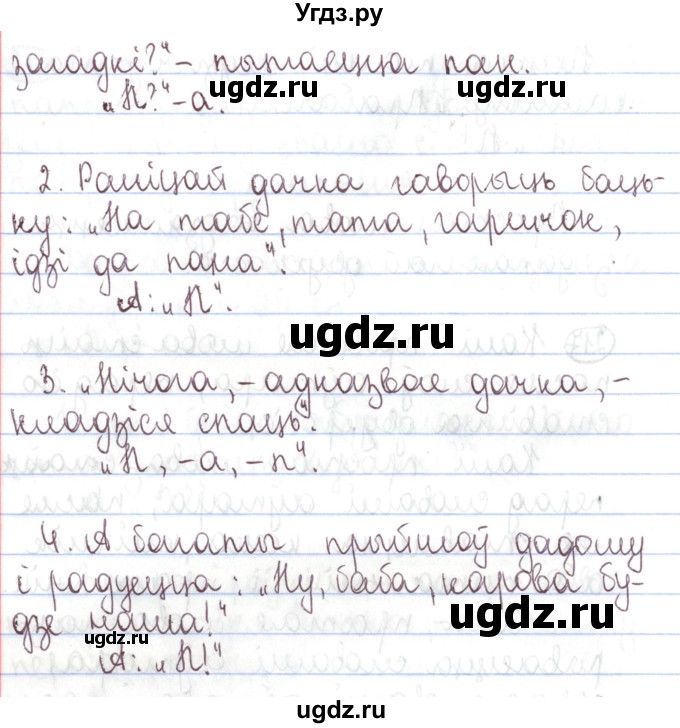 Угдз.ру
загадкі?" – пытаецца пан.
„П?" – а.
ugdz.ru
ugdz.ru
2. Раніцай дачка гаворыць баць-
ку: „На табе, тата, гаршчок,
ідзі да пана".
А: „П".
ugdz.ru
3. „Нічога, – адказвае дачка, –
кладзіся спаць".
„П, – а, – п".
4. А багаты прыйшоў дадому
і радуецца: „Ну, баба, карова бу-
дзе наша!"
А: „П!"
ugdz.ru
ugdz.ru